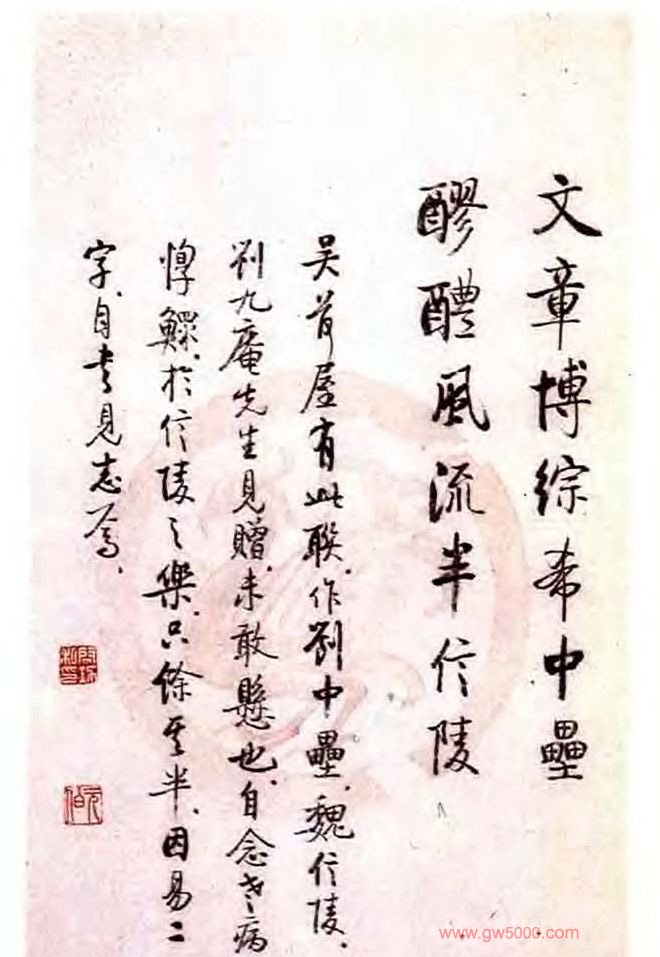 文章博綜希中壘
醪醴風流半信陵
吴苦屋有此聯、作劉中壘、魏信陵、
劉九庵先生見贈、未敢懸也、自念老病
惸鰥、於信陵之樂、只餘其半、因易二
字、自書見志焉、
啟功私印
元伯
www.gw5000.com